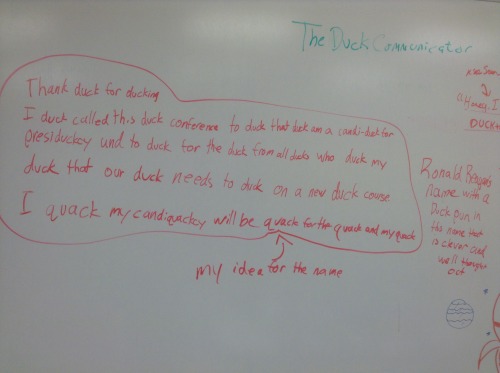 The Duck Communicator
Thank duck for ducking
I duck called this duck conference to duck that duck am a candi-duck for
presiduckey und to duck for the duck from all ducks who duck my
duck that our duck needs to duck on a new duck course
I quack my candiquacky will be quack for the quack and my quack
my idea for the name
Honey, I
DUCK
Ronald Reagan's
name with a
Duck pun in
the name that
is clever and
well thought
out